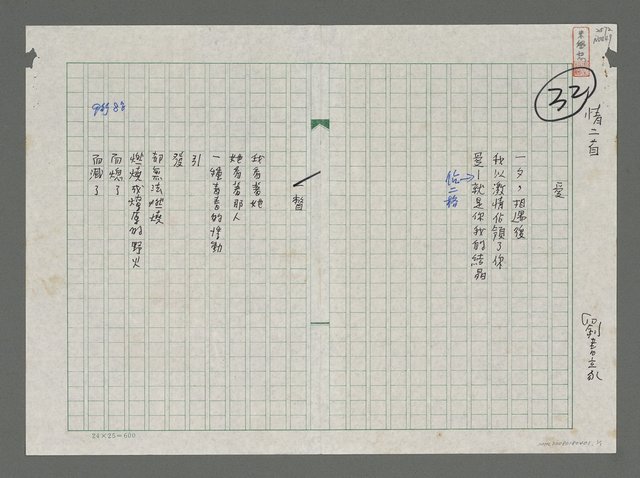 情二首
愛
一夕，相遇後
我以激情佔領了你
愛—就是你我的結晶
瞥
我看著她
她看著那人
一種青春的悸動
引
發
卻無法燃燒
燃燒成燎原的野火
而熄了
而滅了
33
24×25=600